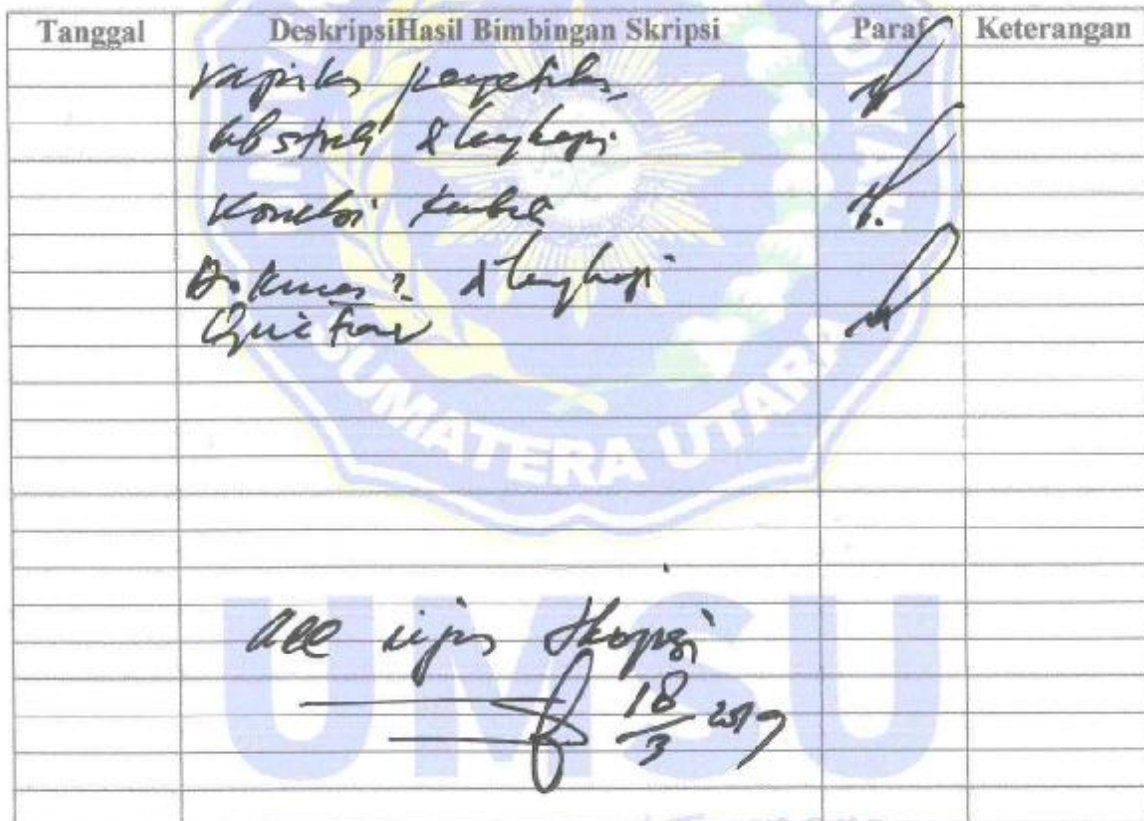 Tanggal DeskripsiHasil Bimbingan Skripsi Paraf Keterangan
rapikan pengetikan,
abstrak dlengkapi
Koreksi tabel
dlengkapi
SUMATERA UTARA
acc ujian skripsi
18/3 2019
UMSU